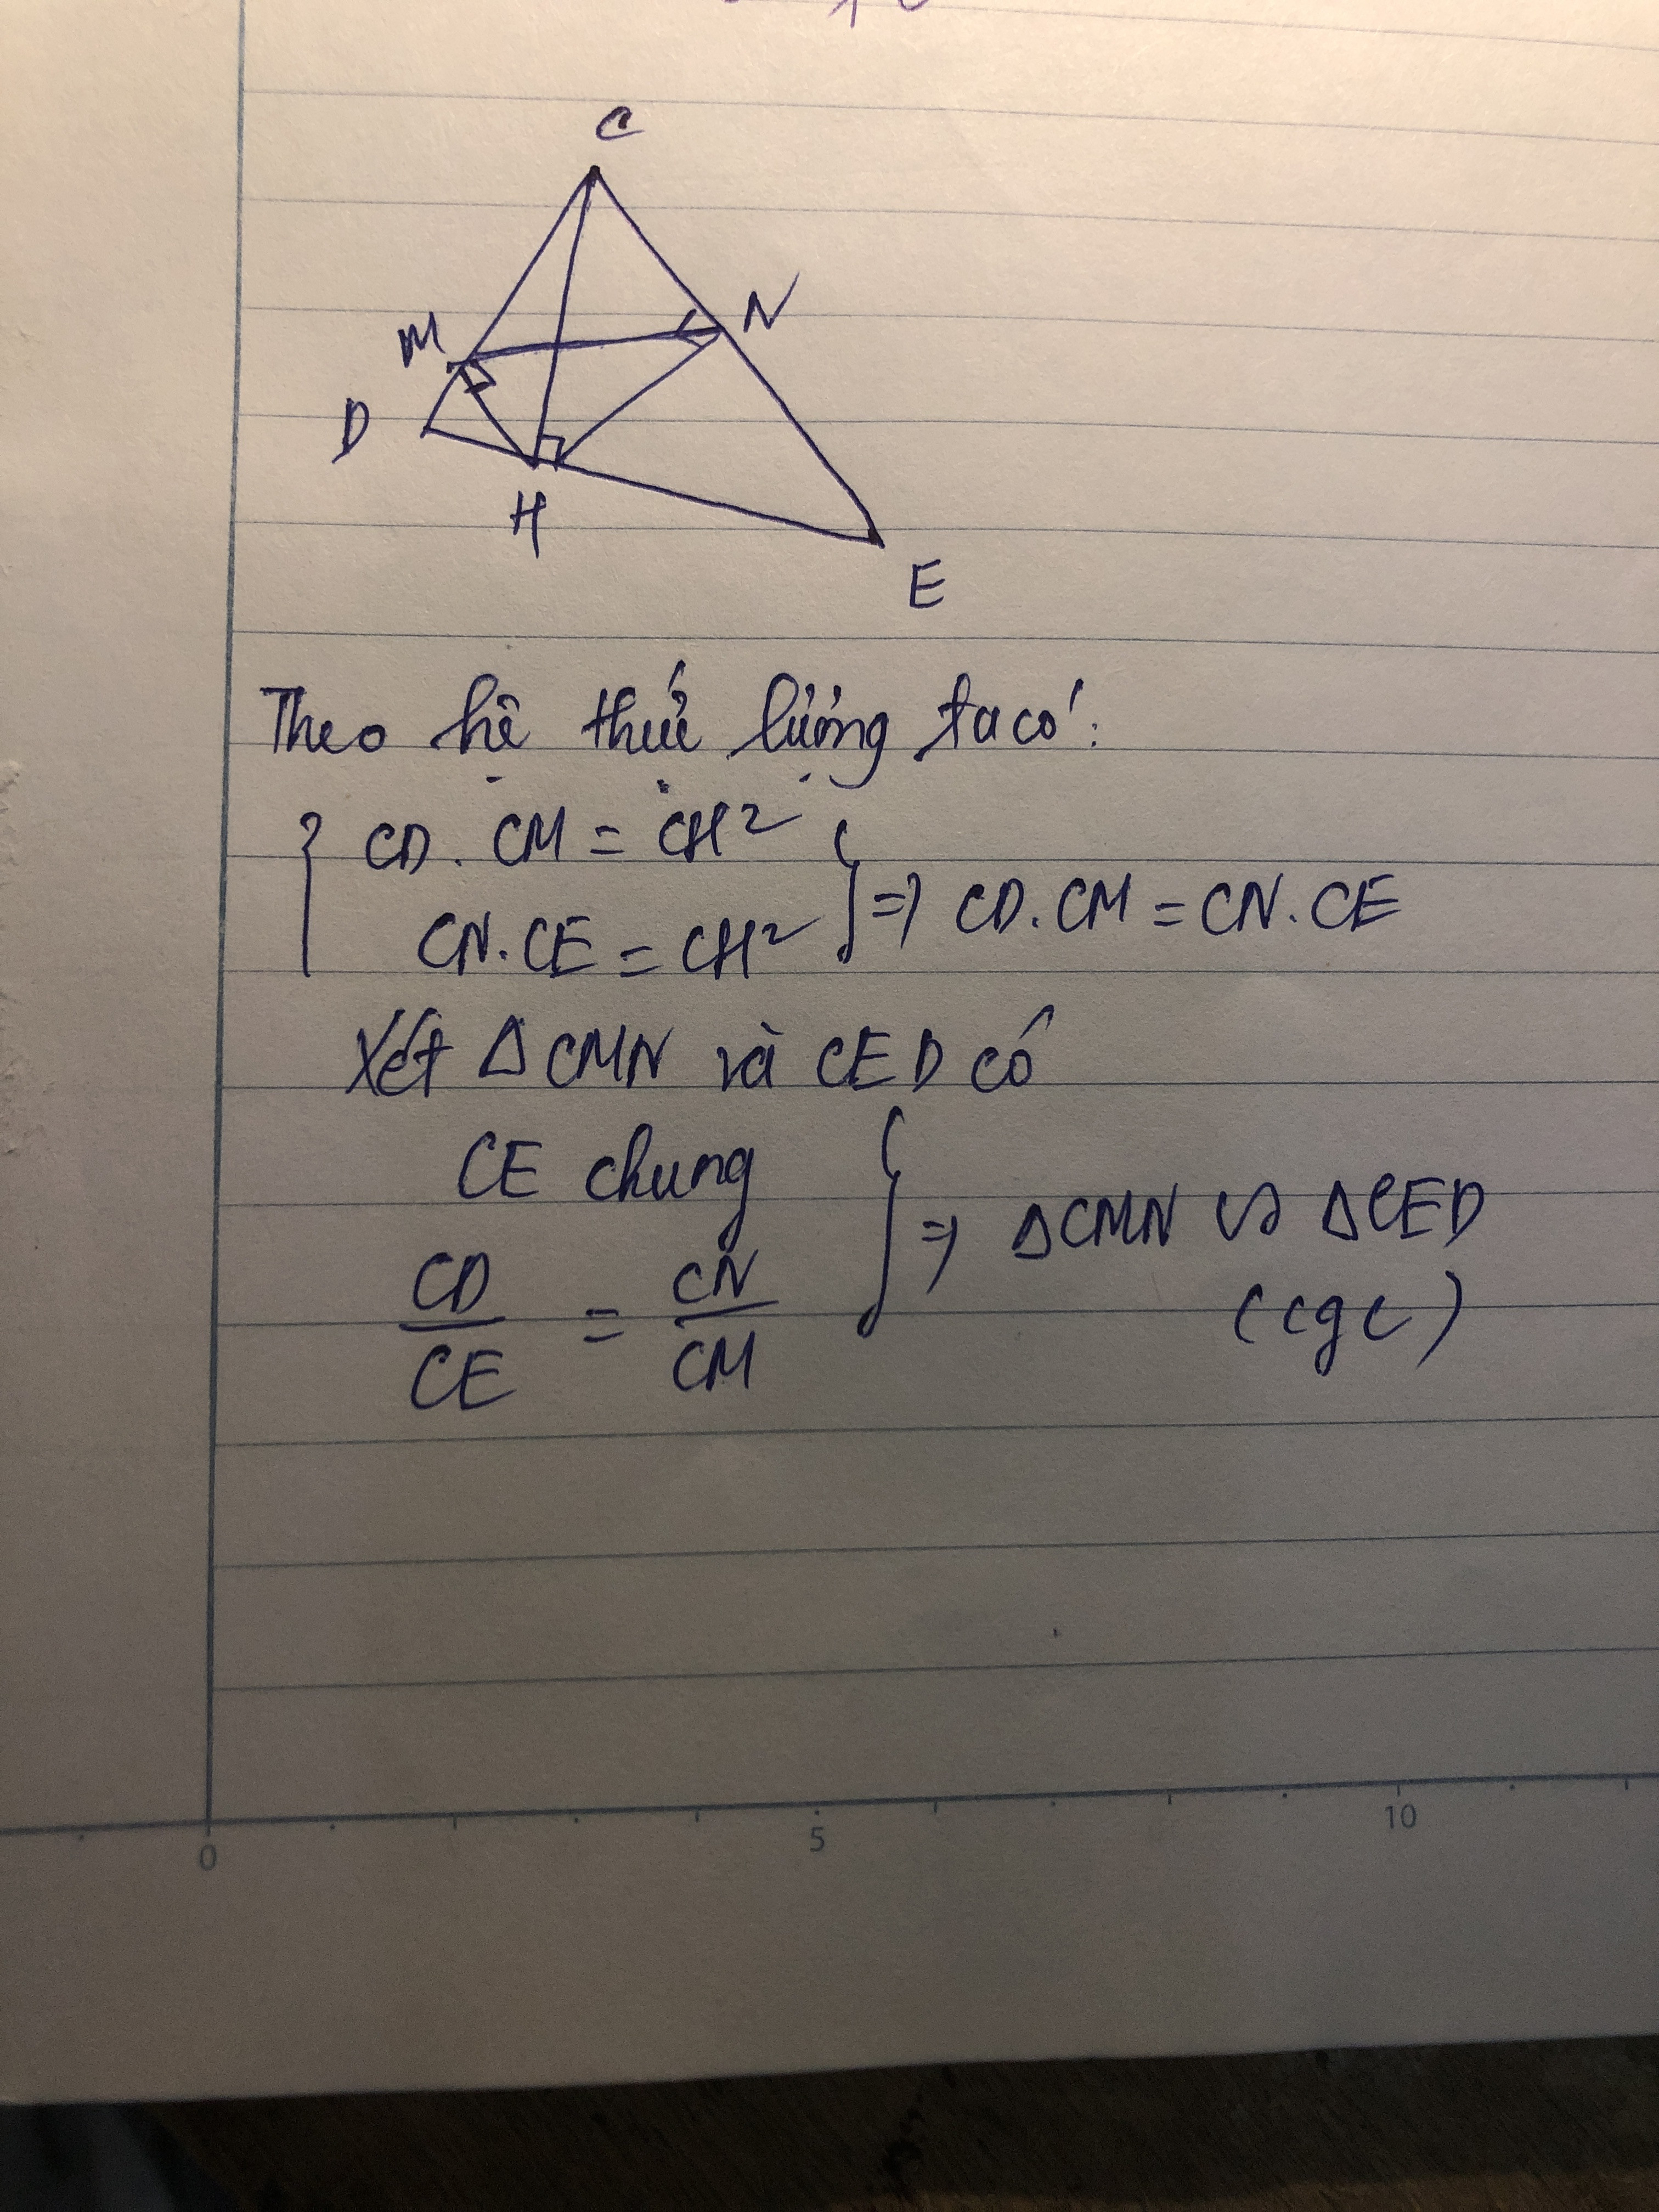 C
M
N
D
H
E
Theo hệ thức lượng ta có:
{ CD . CM = CH²
CN.CE = CH² } => CD.CM = CN.CE
Xét Δ CMN và CED có
CE chung
CD/CE = CN/CM } => ΔCMN ∽ ΔCED
(cgc)
0 5 10